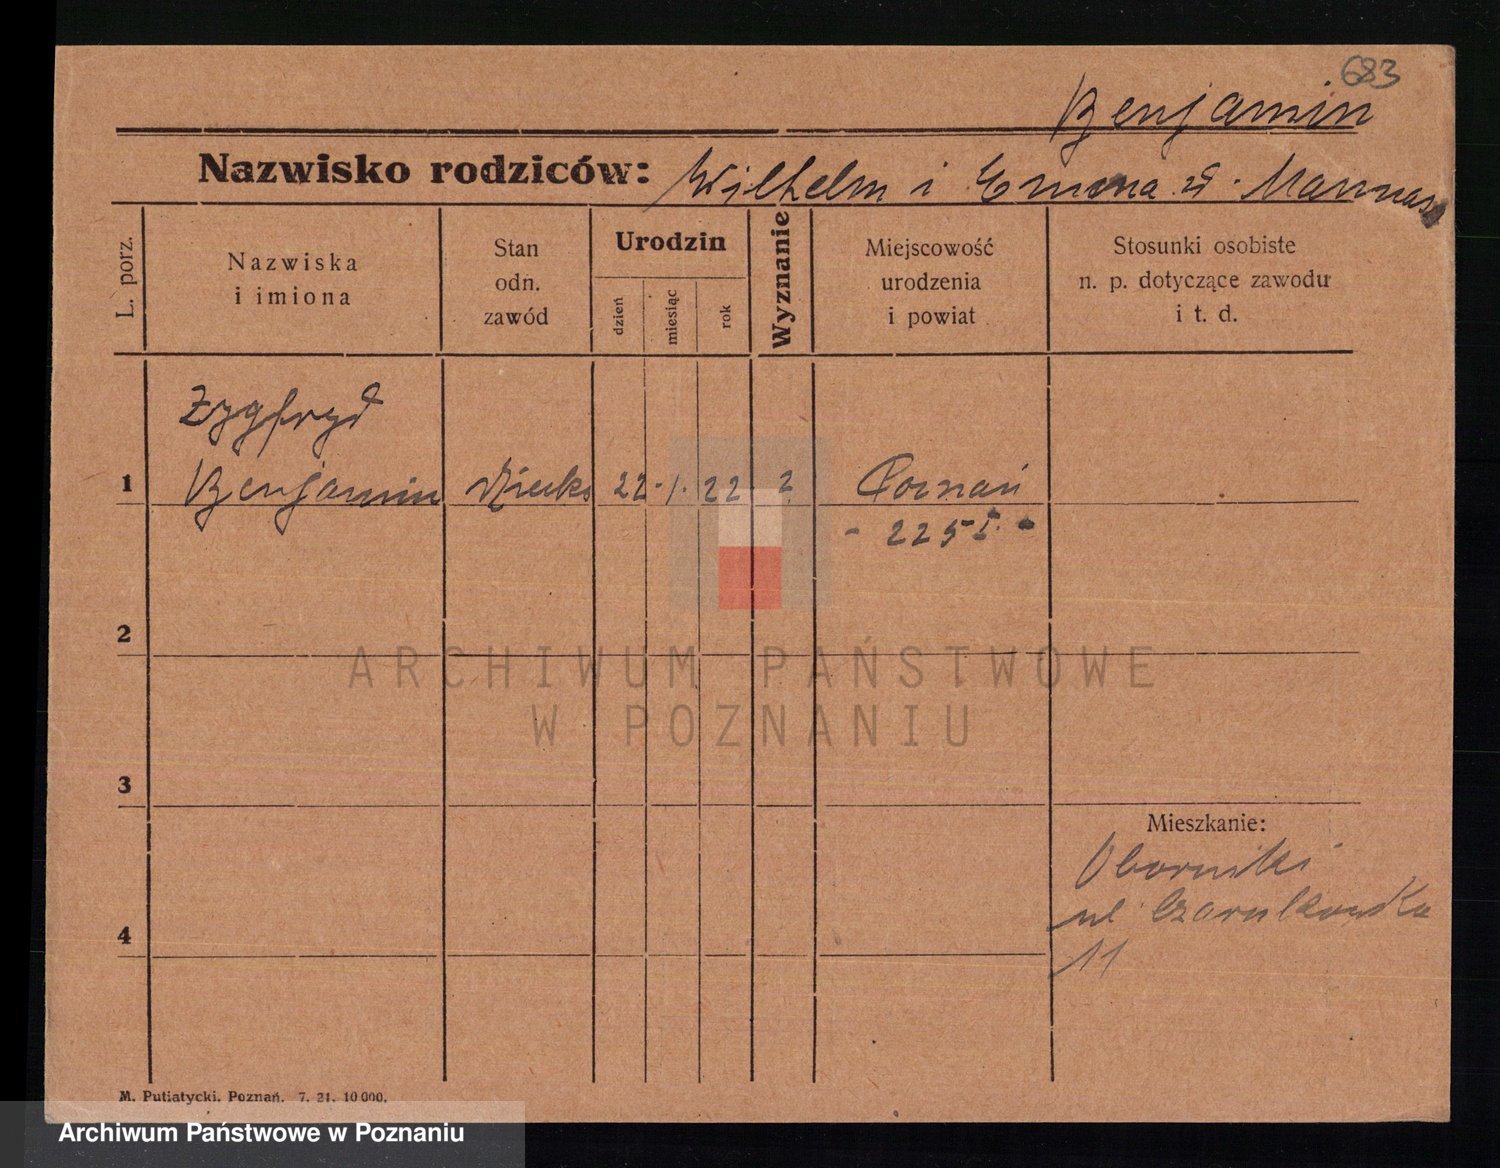 683
Benjamin
Nazwisko rodziców: Wilhelm i Emma zd. Mannas
L. porz.
Nazwiska
i imiona
Stan
odn.
zawód
Urodzin
dzień
miesiąc
rok
Wyznanie
Miejscowość
urodzenia
i powiat
Stosunki osobiste
n. p. dotyczące zawodu
i t. d.
Zygfryd
1 Benjamin dziecko 22. 1. 22 ? Poznań
- 225 I. -
2
ARCHIWUM PAŃSTWOWE
W POZNANIU
3
Mieszkanie:
Oborniki
ul Czarnkowska
4
11
M. Putiatycki. Poznań. 7. 21. 10 000.
Archiwum Państwowe w Poznaniu